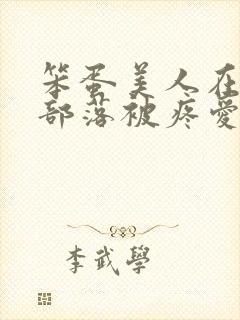 笨蛋美人在
部落被疼愛
李武學